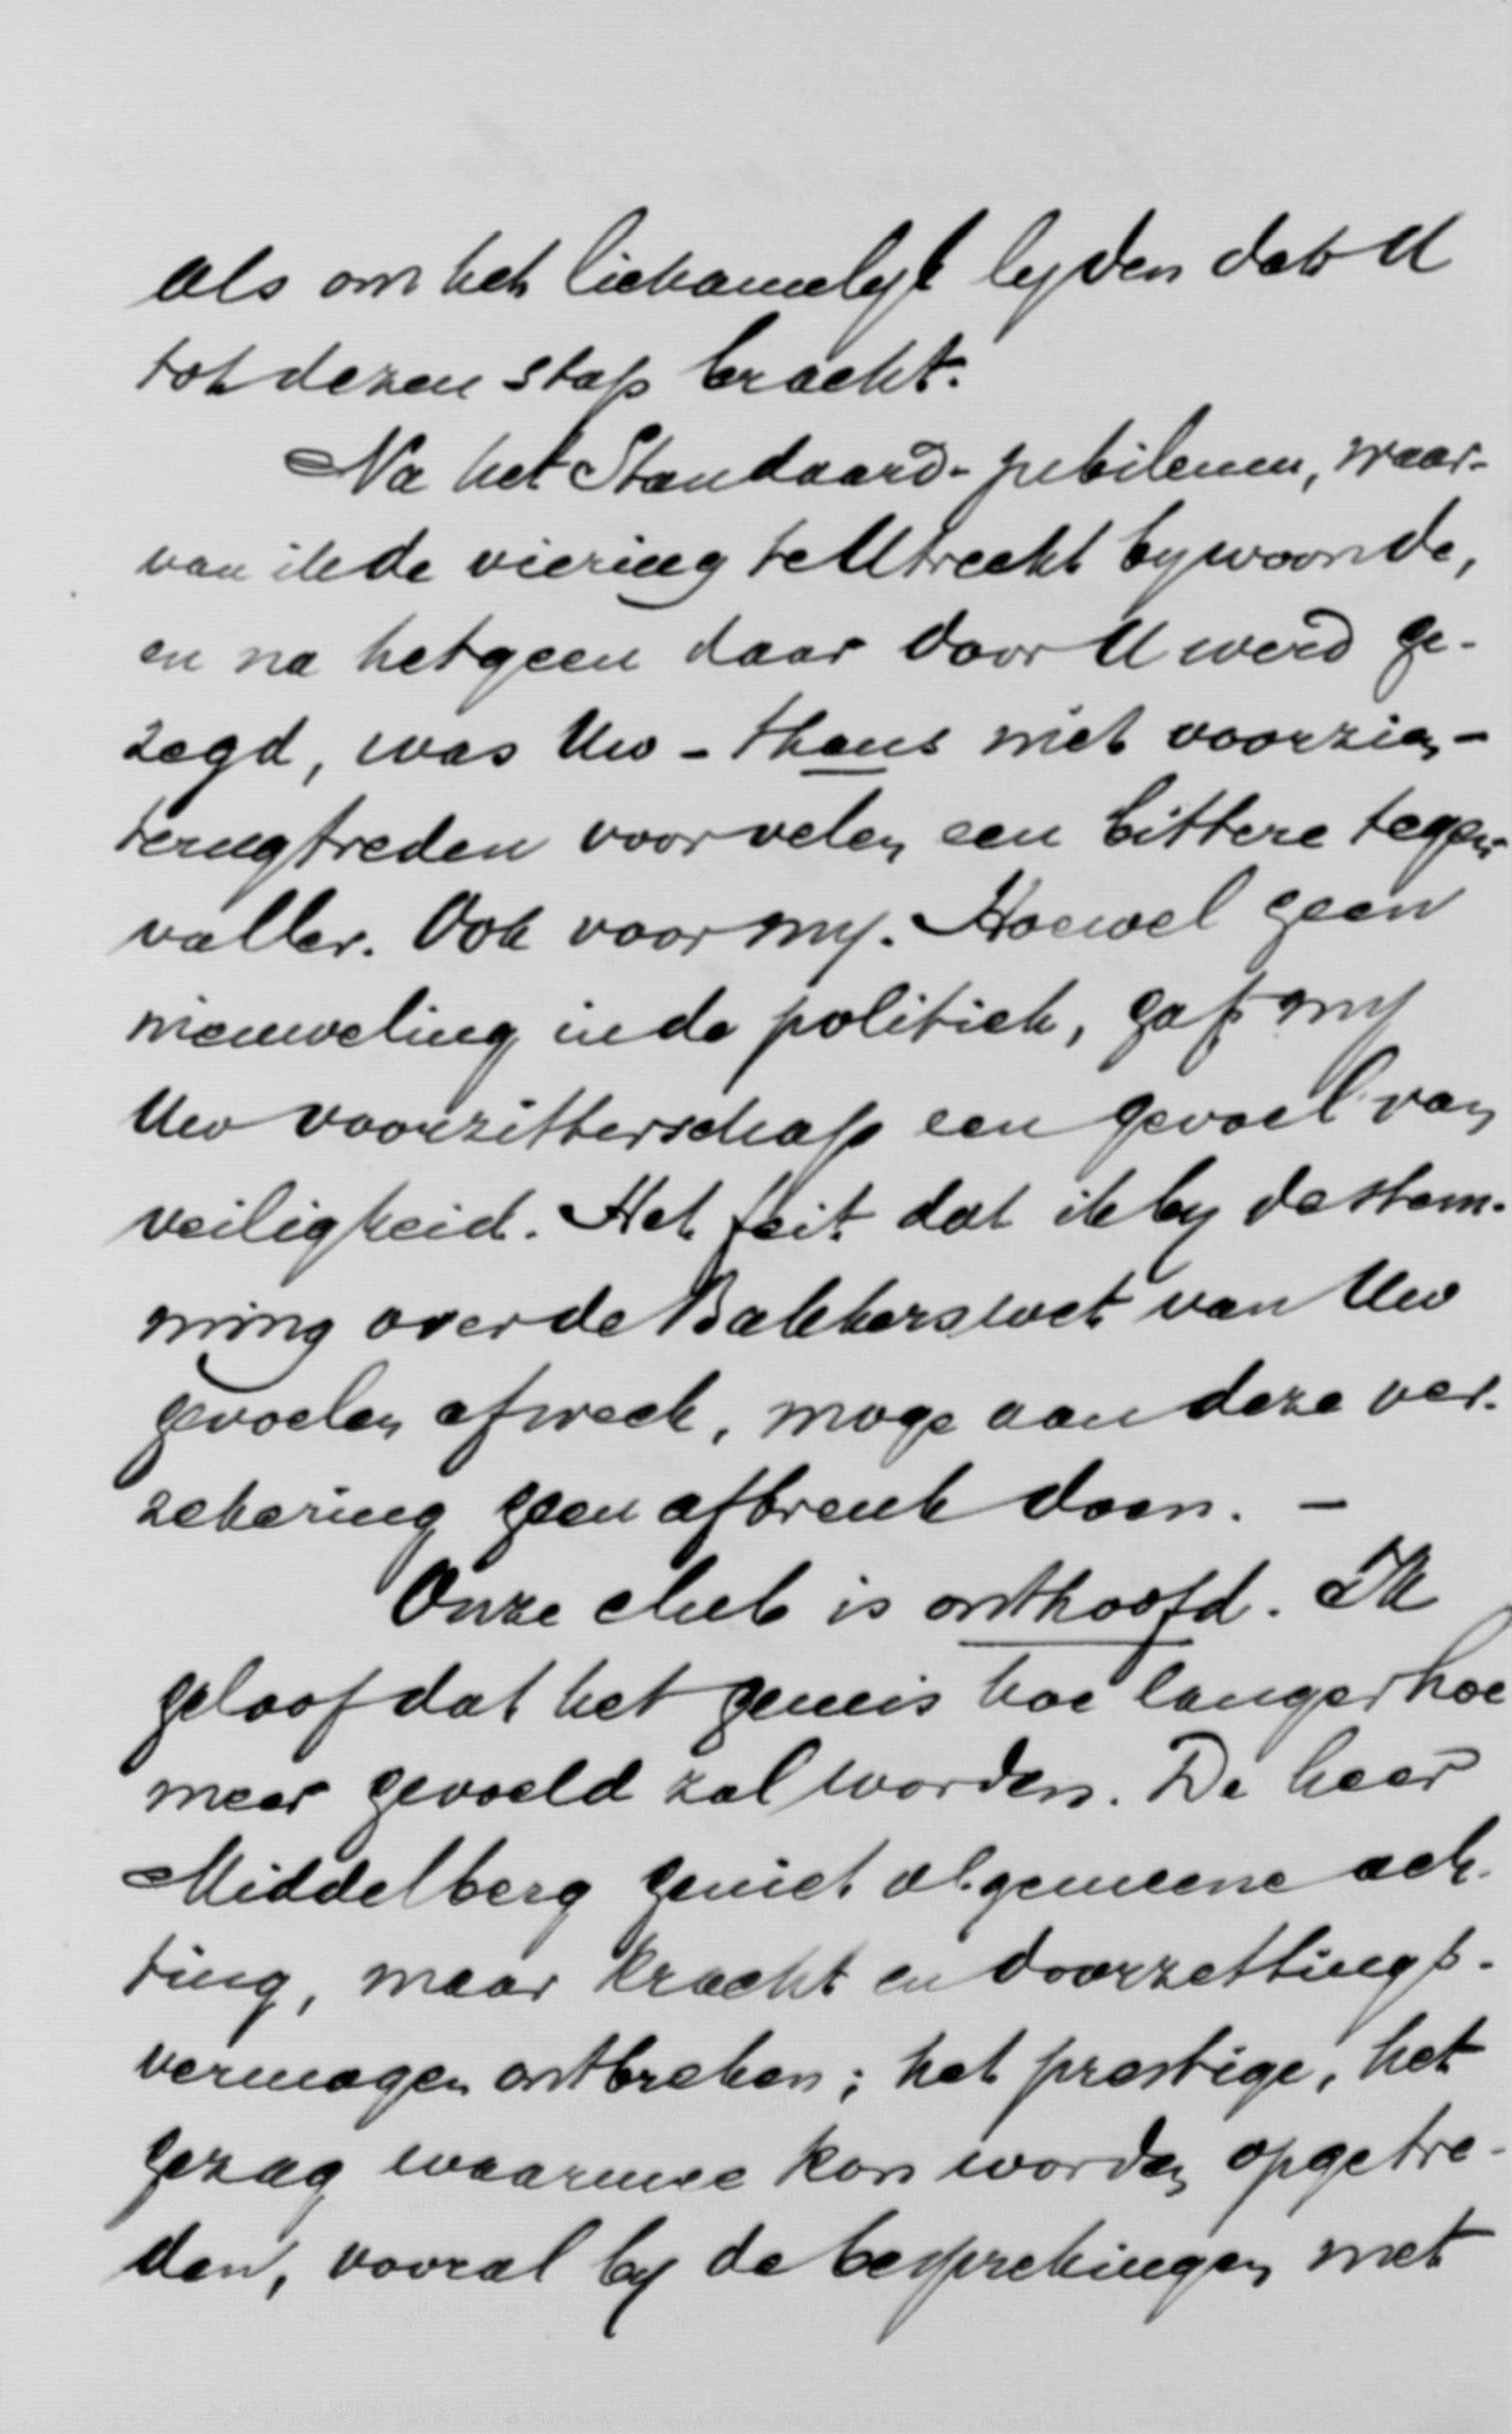 als om het lichamelyk lyden dat U
tot dezen stap bracht.
Na het Standaard-jubileum, waar-
van ik de viering te Utrecht bywoonde,
en na hetgeen daar door U werd ge-
zegd, was Uw - thans niet voorzien -
terugtreden voor velen een bittere tegen-
valler. Ook voor my. Hoewel geen
nieuweling in de politiek, gaf my
Uw voorzitterschap een gevoel van
veiligheid. Het feit dat ik by de stem-
ming over de Bakkerswet van Uw
gevoelen afweek, moge aan deze ver-
zekering geen afbreuk doen. -
Onze club is onthoofd. Ik
geloof dat het gemis hoe langer hoe
meer gevoeld zal worden. De heer
Middelberg geniet algemeene ach-
ting, maar kracht en doorzettings-
vermogen ontbreken; het prestige, het
gezag waarmee kon worden opgetre-
den, vooral by de besprekingen met